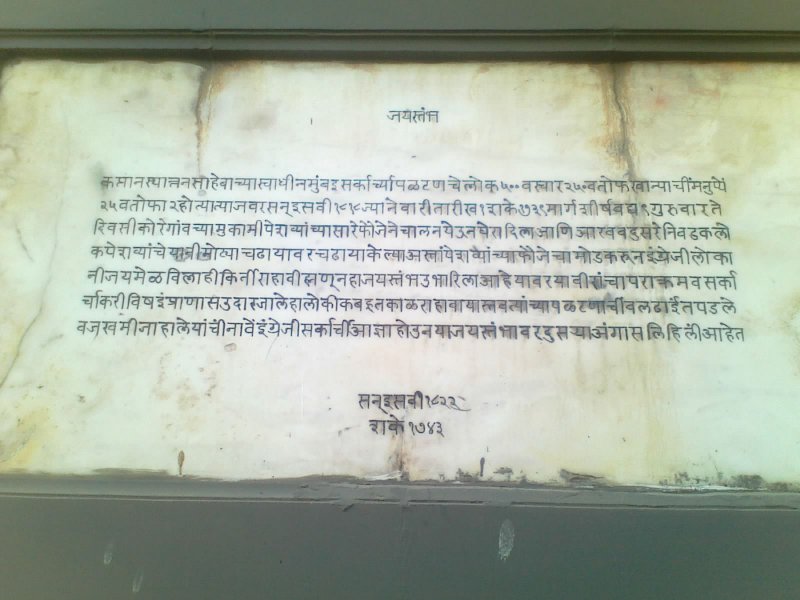 जयस्तंभ
कप्तानस्पान्तनसाहेबाच्यास्वाधीनमुंबइसर्काराच्यापळटणचेलोक५००वस्वार२५०वतोफखान्याचींमनुष्यें
२५वतोफा२होत्यात्याजवरसन्इसवी१८१८ज्यानेवारीतारीख१शके१७३९मार्गशीर्षवद्य९गुरुवारते
दिवसीकोरेगांवच्यामुकामीपेशव्यांच्यासारेफौजेनेचालनघेउनघेरादिलाआणिआरबवदुसरेनिवडकलो
कपेशव्यांचेयानीमोठ्याचढायावरचढायाकेल्याअसतांपेशव्यांच्याफौजेचामोडकरुनइंग्रेजीलोका
नीजयमेळविलाहीकिर्तीराहावीह्मणूनहाजयस्तंभउभारिलाआहेयावरयावीरांचापराक्रमवसर्का
र्चाकरीविषइंप्राणासउदारजालेहालोकीकबहुतकाळराहावायास्तवत्यांच्यापळटणाचींवलढाईतपडले
वजखमीजाहालेयांचीनावेंइंग्रेजीसर्कार्चीआज्ञाहोउनयाजयस्तंभावरदुसऱ्याअंगासलिहिलींआहेत
सन्इसवी१८२२
शके१७४३